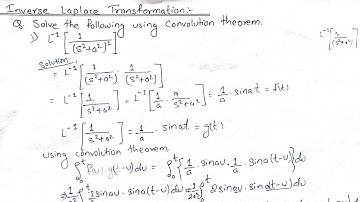 Inverse Laplace Transformation:-
Q. Solve the following using Convolution theorem.
1) L⁻¹[1/(s²+a²)²]
L⁻¹[s/(s²+a²)²]
Solution:-
= L⁻¹[1/(s²+a²) · 1/(s²+a²)]
= L⁻¹[1/(s²+a²)] = L⁻¹[1/a · a/(s²+a²)] = 1/a · sinat = f(t)
L⁻¹[1/(s²+a²)] = 1/a · sinat = g(t)
using convolution theorem,
∫₀ᵗ f(u).g(t-u)du = ∫₀ᵗ {1/a · sinau · 1/a · sina(t-u)}du
sinau · sina(t-u)du = 1/2a² ∫₀ᵗ 2sinau · sina(t-u)du